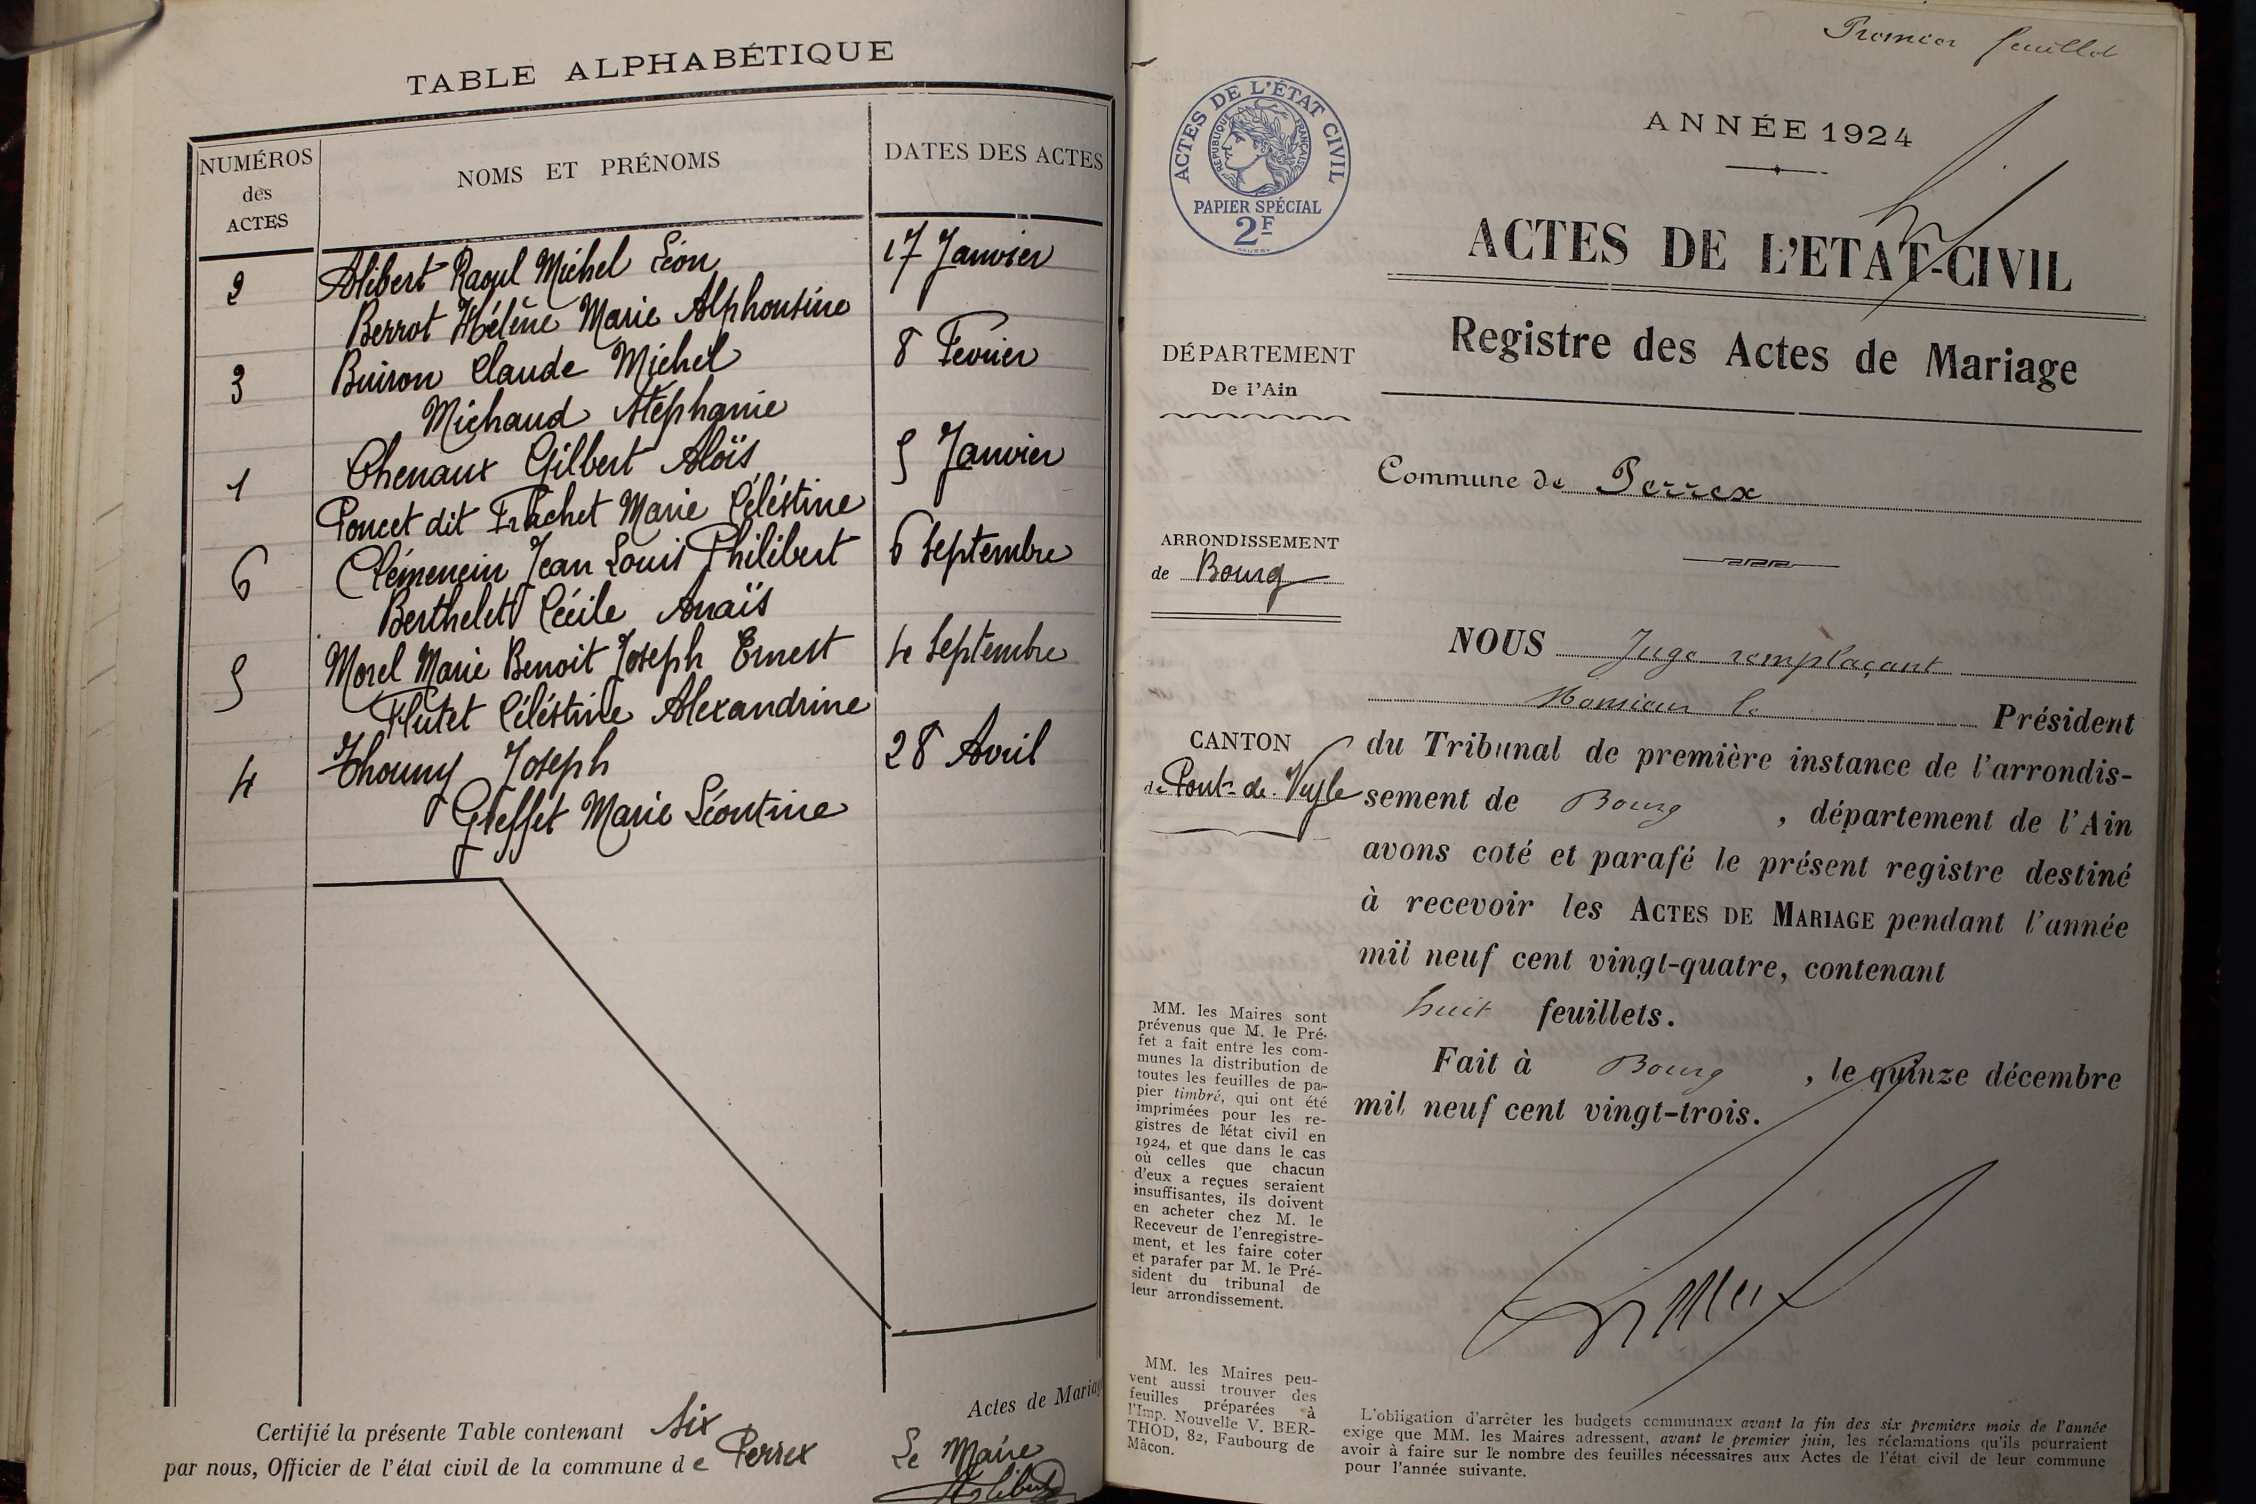 TABLE ALPHABÉTIQUE
NUMÉROS
des
ACTES
NOMS ET PRÉNOMS
DATES DES ACTES
2 Alibert Raoul Michel Léon 17 Janvier
Berrot Hélène Marie Alphonsine
3 Buiron Claude Michel 8 Fevrier
Michaud Stéphanie
1 Chenaux Gilbert Aloïs 5 Janvier
Poncet dit Frachet Marie Céléstine
6 Clémencin Jean Louis Philibert 6 Septembre
Berthelet Cécile Anaïs
5 Morel Marie Benoit Joseph Ernest 4 Septembre
Flutet Céléstine Alexandrine
4 Thouny Joseph 28 Avril
Greffet Marie Léontine
Actes de Mariag
Certifié la présente Table contenant Six
par nous, Officier de l'état civil de la commune de Perrex
Le Maire
Alibert
Premier feuillet
ACTES DE L'ÉTAT CIVIL
RÉPUBLIQUE FRANÇAISE
PAPIER SPÉCIAL
2F
ANNÉE 1924
ACTES DE L'ETAT-CIVIL
Registre des Actes de Mariage
DÉPARTEMENT
De l'Ain
Commune de Perrex
ARRONDISSEMENT
de Bourg
CANTON
de Pont-de-Veyle
NOUS Juge remplaçant
Monsieur le Président
du Tribunal de première instance de l'arrondis-
sement de Bourg, département de l'Ain
avons coté et parafé le présent registre destiné
à recevoir les ACTES DE MARIAGE pendant l'année
mil neuf cent vingt-quatre, contenant
huit feuillets.
Fait à Bourg, le quinze décembre
mil neuf cent vingt-trois.
MM. les Maires sont
prévenus que M. le Pré-
fet a fait entre les com-
munes la distribution de
toutes les feuilles de pa-
pier timbré, qui ont été
imprimées pour les re-
gistres de l'état civil en
1924, et que dans le cas
où celles que chacun
d'eux a reçues seraient
insuffisantes, ils doivent
en acheter chez M. le
Receveur de l'enregistre-
ment, et les faire coter
et parafer par M. le Pré-
sident du tribunal de
leur arrondissement.
MM. les Maires peu-
vent aussi trouver des
feuilles préparées à
l'Imp. Nouvelle V. BER-
THOD, 82, Faubourg de
Mâcon.
L'obligation d'arrêter les budgets communaux avant la fin des six premiers mois de l'année
exige que MM. les Maires adressent, avant le premier juin, les réclamations qu'ils pourraient
avoir à faire sur le nombre des feuilles nécessaires aux Actes de l'état civil de leur commune
pour l'année suivante.